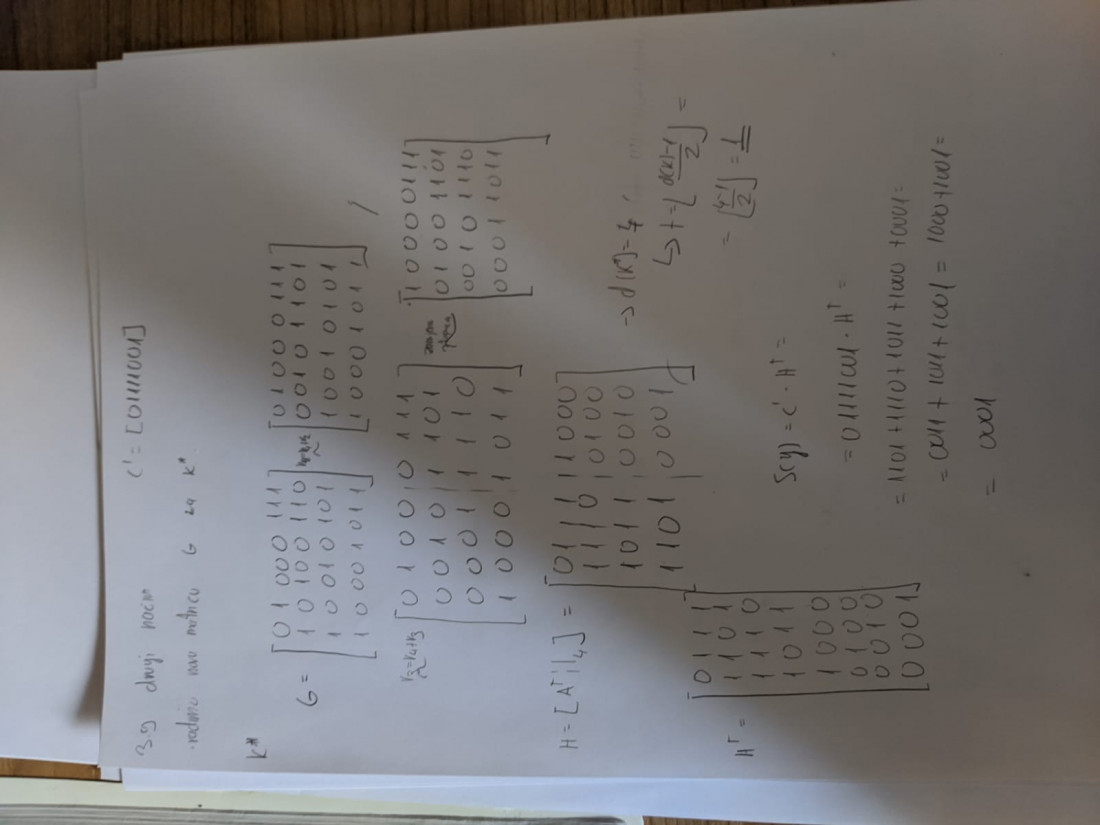 3.9 drugi način c' = [01111001]
· radimo novu matricu G za K*
K*
G = [0 1 000 111]
[1 0 100 110]
[1 0 010 101]
[1 0 001 011]
[0 1 0 0 0 1 1 1]
[0 0 1 0 1 1 0 1]
[1 0 0 1 0 1 0 1]
[1 0 0 0 1 0 1 1]
r3=r4+r3
~
[0 1 0 0 0 1 1 1]
[0 0 1 0 1 1 0 1]
[0 0 0 1 1 1 1 0]
[1 0 0 0 1 0 1 1]
~
[1 0 0 0 0 1 1 1]
[0 1 0 0 1 1 0 1]
[0 0 1 0 1 1 1 0]
[0 0 0 1 1 0 1 1]
H = [A^T | I4] =
[0 1 1 1 | 1 0 0 0]
[1 1 1 0 | 0 1 0 0]
[1 0 1 1 | 0 0 1 0]
[1 1 0 1 | 0 0 0 1]
→ d(K*) = 4
↳ t = ⌊ d(K)-1 / 2 ⌋ =
= ⌊ 4-1 / 2 ⌋ = 1
H^T =
[0 1 1 1]
[1 1 0 1]
[1 1 1 0]
[1 0 1 1]
[1 0 0 0]
[0 1 0 0]
[0 0 1 0]
[0 0 0 1]
S(y) = c' · H^T =
= 01111001 · H^T =
= 1101 + 1110 + 1011 + 1000 + 0001 =
= 0011 + 1011 + 1001 = 1000 + 1001 =
= 0001